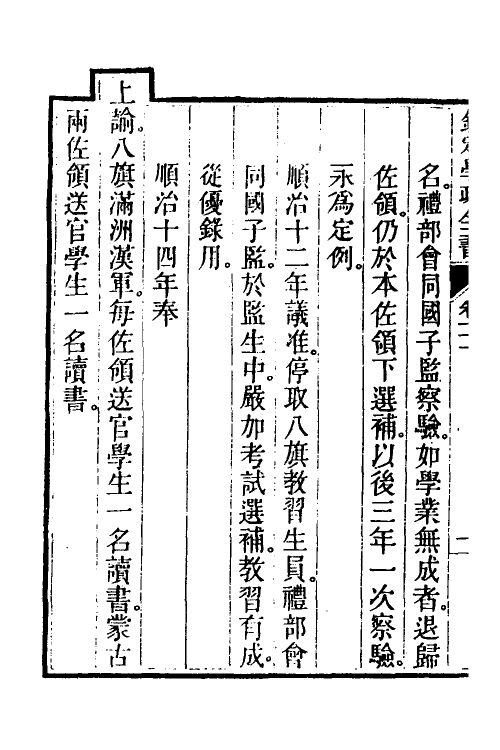 欽定學政全書 卷二十
名。禮部會同國子監察驗。如學業無成者。退歸
佐領。仍於本佐領下選補。以後三年一次察驗。
永爲定例。
順治十二年議准。停取八旗教習生員。禮部會
同國子監。於監生中。嚴加考試選補。教習有成。
從優錄用。
順治十四年奉
上諭。八旗滿洲漢軍。每佐領送官學生一名讀書。蒙古
兩佐領送官學生一名讀書。